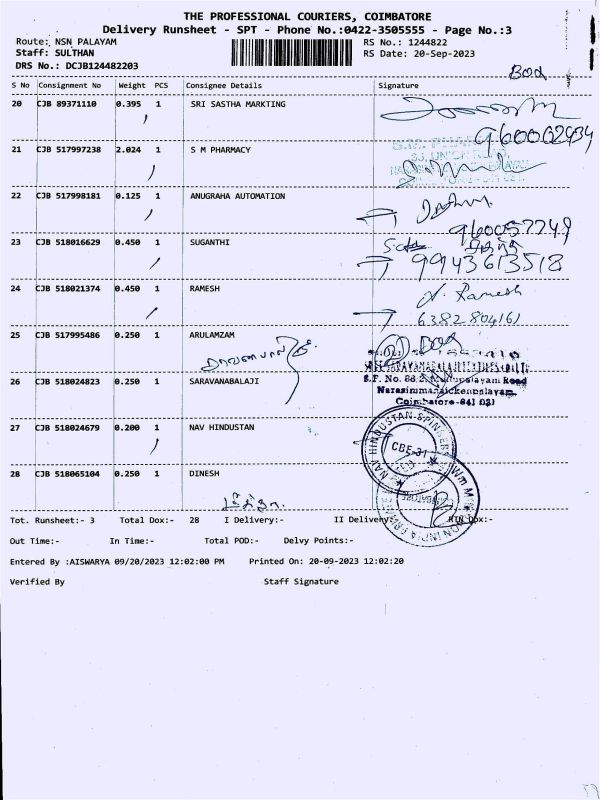 THE PROFESSIONAL COURIERS, COIMBATORE
Delivery Runsheet - SPT - Phone No.:0422-3505555 - Page No.:3
Route: NSN PALAYAM RS No.: 1244822
Staff: SULTHAN RS Date: 20-Sep-2023
DRS No.: DCJB124482203
S No Consignment No Weight PCS Consignee Details Signature
20 CJB 89371110 0.395 1 SRI SASTHA MARKTING
21 CJB 517997238 2.024 1 S M PHARMACY
22 CJB 517998181 0.125 1 ANUGRAHA AUTOMATION
23 CJB 518016629 0.450 1 SUGANTHI
9943613518
24 CJB 518021374 0.450 1 RAMESH N. Ramesh
6382804161
25 CJB 517995486 0.250 1 ARULAMZAM
26 CJB 518024823 0.250 1 SARAVANABALAJI
Coimbatore-641 031
27 CJB 518024679 0.200 1 NAV HINDUSTAN NAV HINDUSTAN CBE-31
28 CJB 518065104 0.250 1 DINESH
Tot. Runsheet:- 3 Total Dox:- 28 I Delivery:- II Delivery:- RTN Dox:-
Out Time:- In Time:- Total POD:- Delvy Points:-
Entered By :AISWARYA 09/20/2023 12:02:00 PM Printed On: 20-09-2023 12:02:20
Verified By Staff Signature